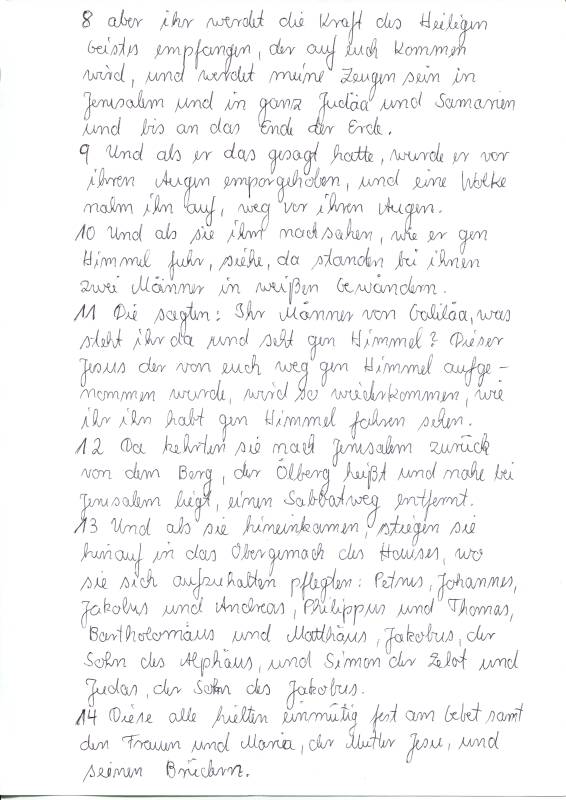 8 aber ihr werdet die Kraft des Heiligen
Geistes empfangen, der auf euch kommen
wird, und werdet meine Zeugen sein in
Jerusalem und in ganz Judäa und Samarien
und bis an das Ende der Erde.
9 Und als er das gesagt hatte, wurde er vor
ihren Augen emporgehoben, und eine Wolke
nahm ihn auf, weg vor ihren Augen.
10 Und als sie ihm nachsahen, wie er gen
Himmel fuhr, siehe, da standen bei ihnen
zwei Männer in weißen Gewändern.
11 Die sagten: Ihr Männer von Galiläa, was
steht ihr da und seht gen Himmel? Dieser
Jesus der von euch weg gen Himmel aufge-
nommen wurde, wird so wiederkommen, wie
ihr ihn habt gen Himmel fahren sehen.
12 Da kehrten sie nach Jerusalem zurück
von dem Berg, der Ölberg heißt und nahe bei
Jerusalem liegt, einen Sabbatweg entfernt.
13 Und als sie hineinkamen, stiegen sie
hinauf in das Obergemach des Hauses, wo
sie sich aufzuhalten pflegten: Petrus, Johannes,
Jakobus und Andreas, Philippus und Thomas,
Bartholomäus und Matthäus, Jakobus, der
Sohn des Alphäus, und Simon der Zelot und
Judas, der Sohn des Jakobus.
14 Diese alle hielten einmütig fest am Gebet samt
den Frauen und Maria, der Mutter Jesu, und
seinen Brüdern.